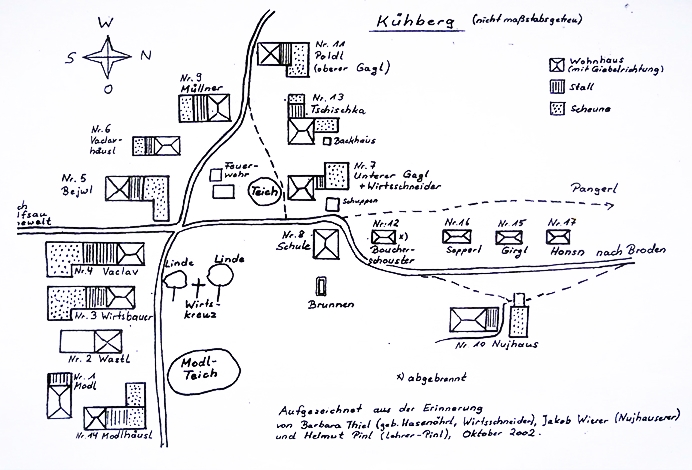 Kühberg (nicht maßstabsgetreu)
W
S N
O
Wohnhaus
(mit Giebelrichtung)
Stall
Scheune
Nr. 11
Poldl
(oberer Gagl)
Nr. 9
Müllner
Nr. 13
Tschischka
Backhaus
Nr. 6
Vaclav-
häusl
Nr. 5
Bejwl
Feuer-
wehr
Teich
Nr. 7
Unterer Gagl
+ Wirtsschneider
Schuppen
Pangerl
ch
lfsau
ewelt
Nr. 8
Schule
Nr. 12
x)
Boucher-
schouster
Nr. 16
Sepperl
Nr. 15
Girgl
Nr. 17
Honsn
nach Broden
Nr. 4 Vaclav
Linde
Linde
Wirts-
kreuz
Brunnen
Nr. 3 Wirtsbauer
Nr. 2 Wastl
Nr. 10 Nujhaus
Modl-
Teich
Nr. 1
Modl
Nr. 14 Modlhäusl
x) abgebrannt
Aufgezeichnet aus der Erinnerung
von Barbara Thiel (geb. Hasenöhrl, Wirtsschneider), Jakob Wierer (Nujhauserer)
und Helmut Pinl (Lehrer-Pinl), Oktober 2002.